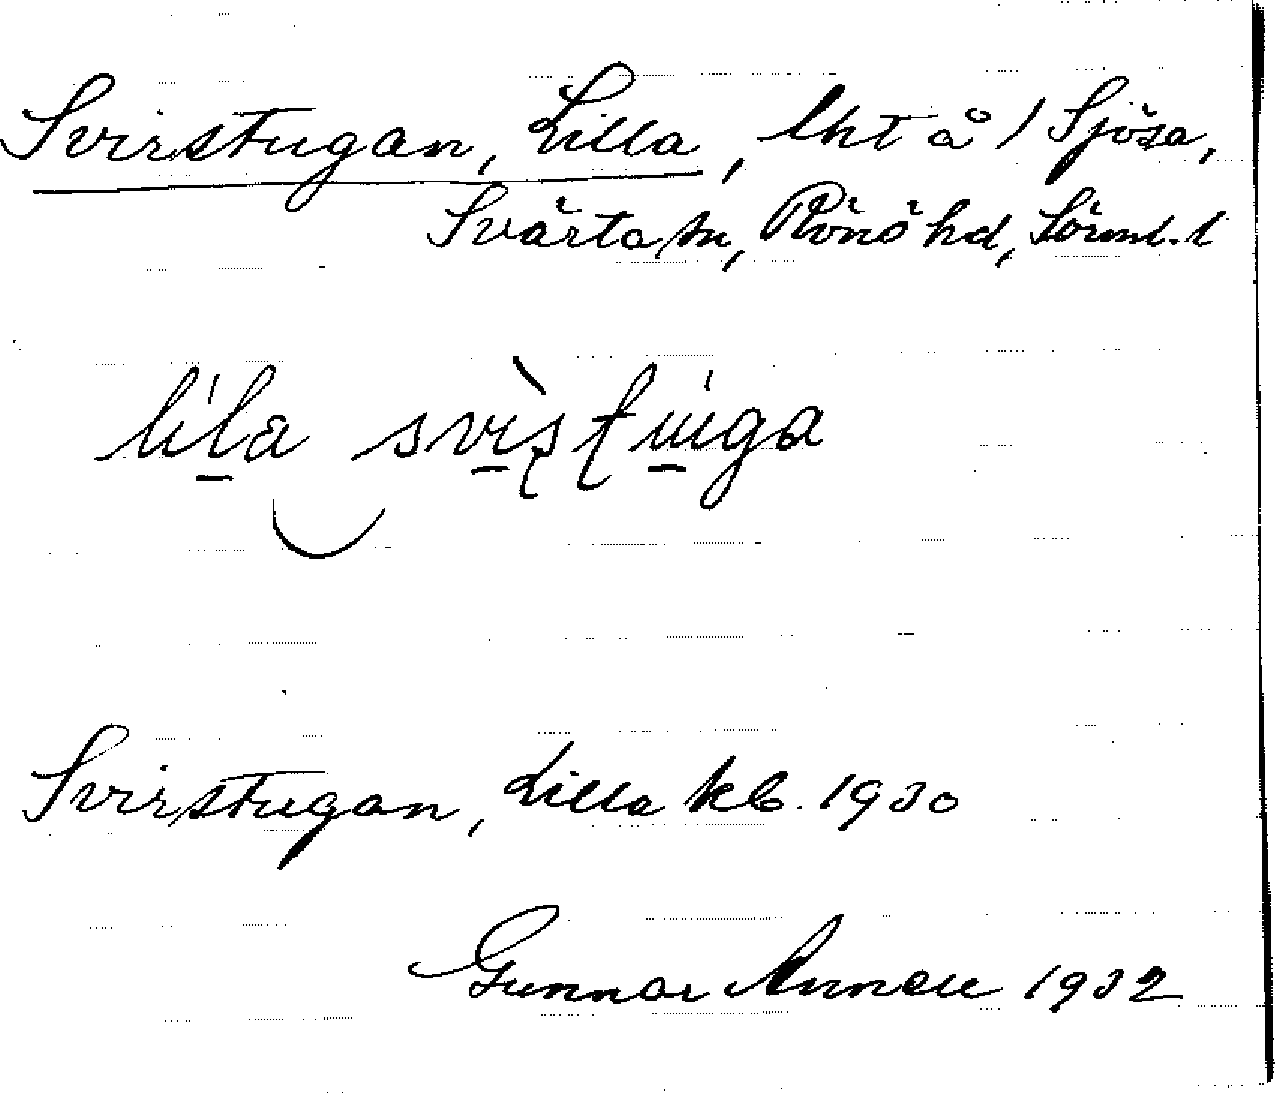 Svirstugan, Lilla, lht å / Sjösa,
Svärta sn, Rönö hd, Sörml. l
lila svi̱ʂʈuga
Svirstugan, Lilla kb. 1930
Gunnar Annell 1932